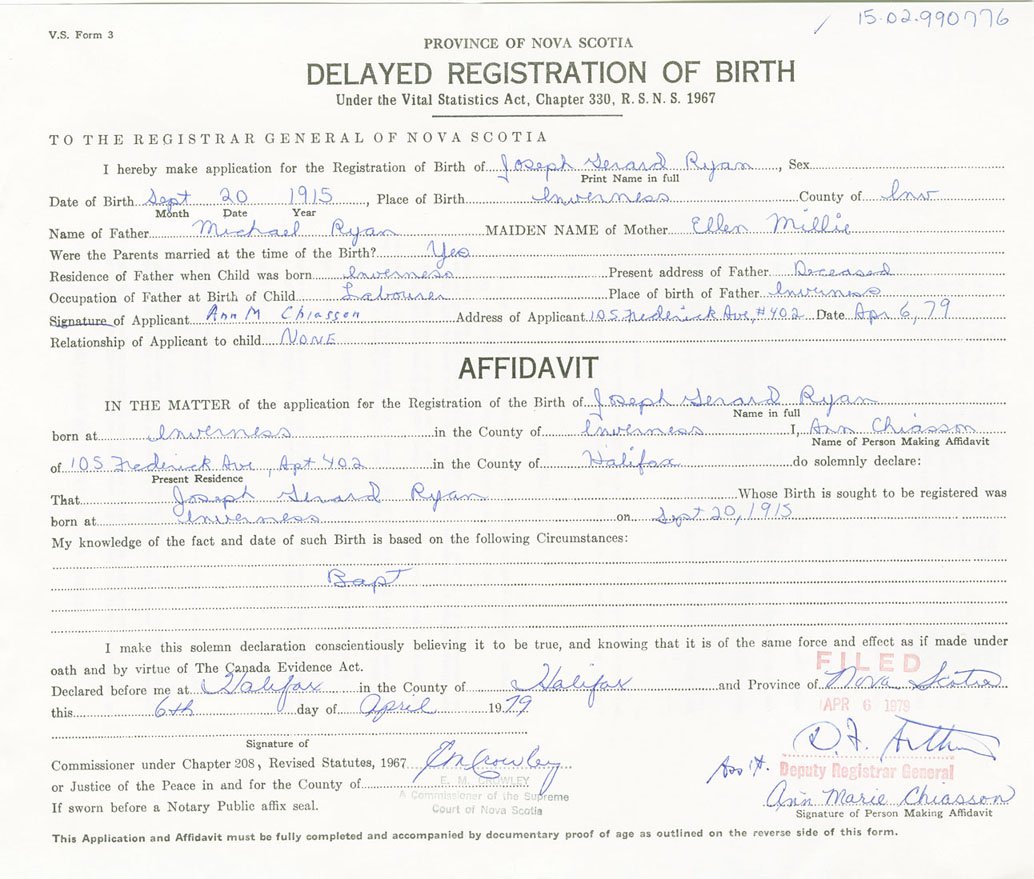 15-02-990776
V.S. Form 3
PROVINCE OF NOVA SCOTIA
DELAYED REGISTRATION OF BIRTH
Under the Vital Statistics Act, Chapter 330, R.S.N.S. 1967
TO THE REGISTRAR GENERAL OF NOVA SCOTIA
I hereby make application for the Registration of Birth of Joseph Gerard Ryan, Sex
Print Name in full
Date of Birth Sept 20 1915, Place of Birth Inverness County of Inv
Month Date Year
Name of Father Michael Ryan MAIDEN NAME of Mother Ellen Millie
Were the Parents married at the time of the Birth? Yes
Residence of Father when Child was born Inverness Present address of Father Deceased
Occupation of Father at Birth of Child Labourer Place of birth of Father Inverness
Signature of Applicant Ann M Chiasson Address of Applicant 105 Frederick Ave, #402 Date Apr 6, 79
Relationship of Applicant to child NONE
AFFIDAVIT
IN THE MATTER of the application for the Registration of the Birth of Joseph Gerard Ryan
Name in full
born at Inverness in the County of Inverness I, Ann Chiasson
Name of Person Making Affidavit
of 105 Frederick Ave, Apt 402 in the County of Halifax do solemnly declare:
Present Residence
That Joseph Gerard Ryan Whose Birth is sought to be registered was
born at Inverness on Sept 20, 1915
My knowledge of the fact and date of such Birth is based on the following Circumstances:
Bapt
I make this solemn declaration conscientiously believing it to be true, and knowing that it is of the same force and effect as if made under
oath and by virtue of The Canada Evidence Act.
FILED
Declared before me at Halifax in the County of Halifax and Province of Nova Scotia
APR 6 1979
this 6th day of April 1979
Signature of
Commissioner under Chapter 208, Revised Statutes, 1967 EM Crowley
D. F.
Ass't. Deputy Registrar General
or Justice of the Peace in and for the County of
E. M. CROWLEY
A Commissioner of the Supreme
Court of Nova Scotia
Ann Marie Chiasson
Signature of Person Making Affidavit
If sworn before a Notary Public affix seal.
This Application and Affidavit must be fully completed and accompanied by documentary proof of age as outlined on the reverse side of this form.